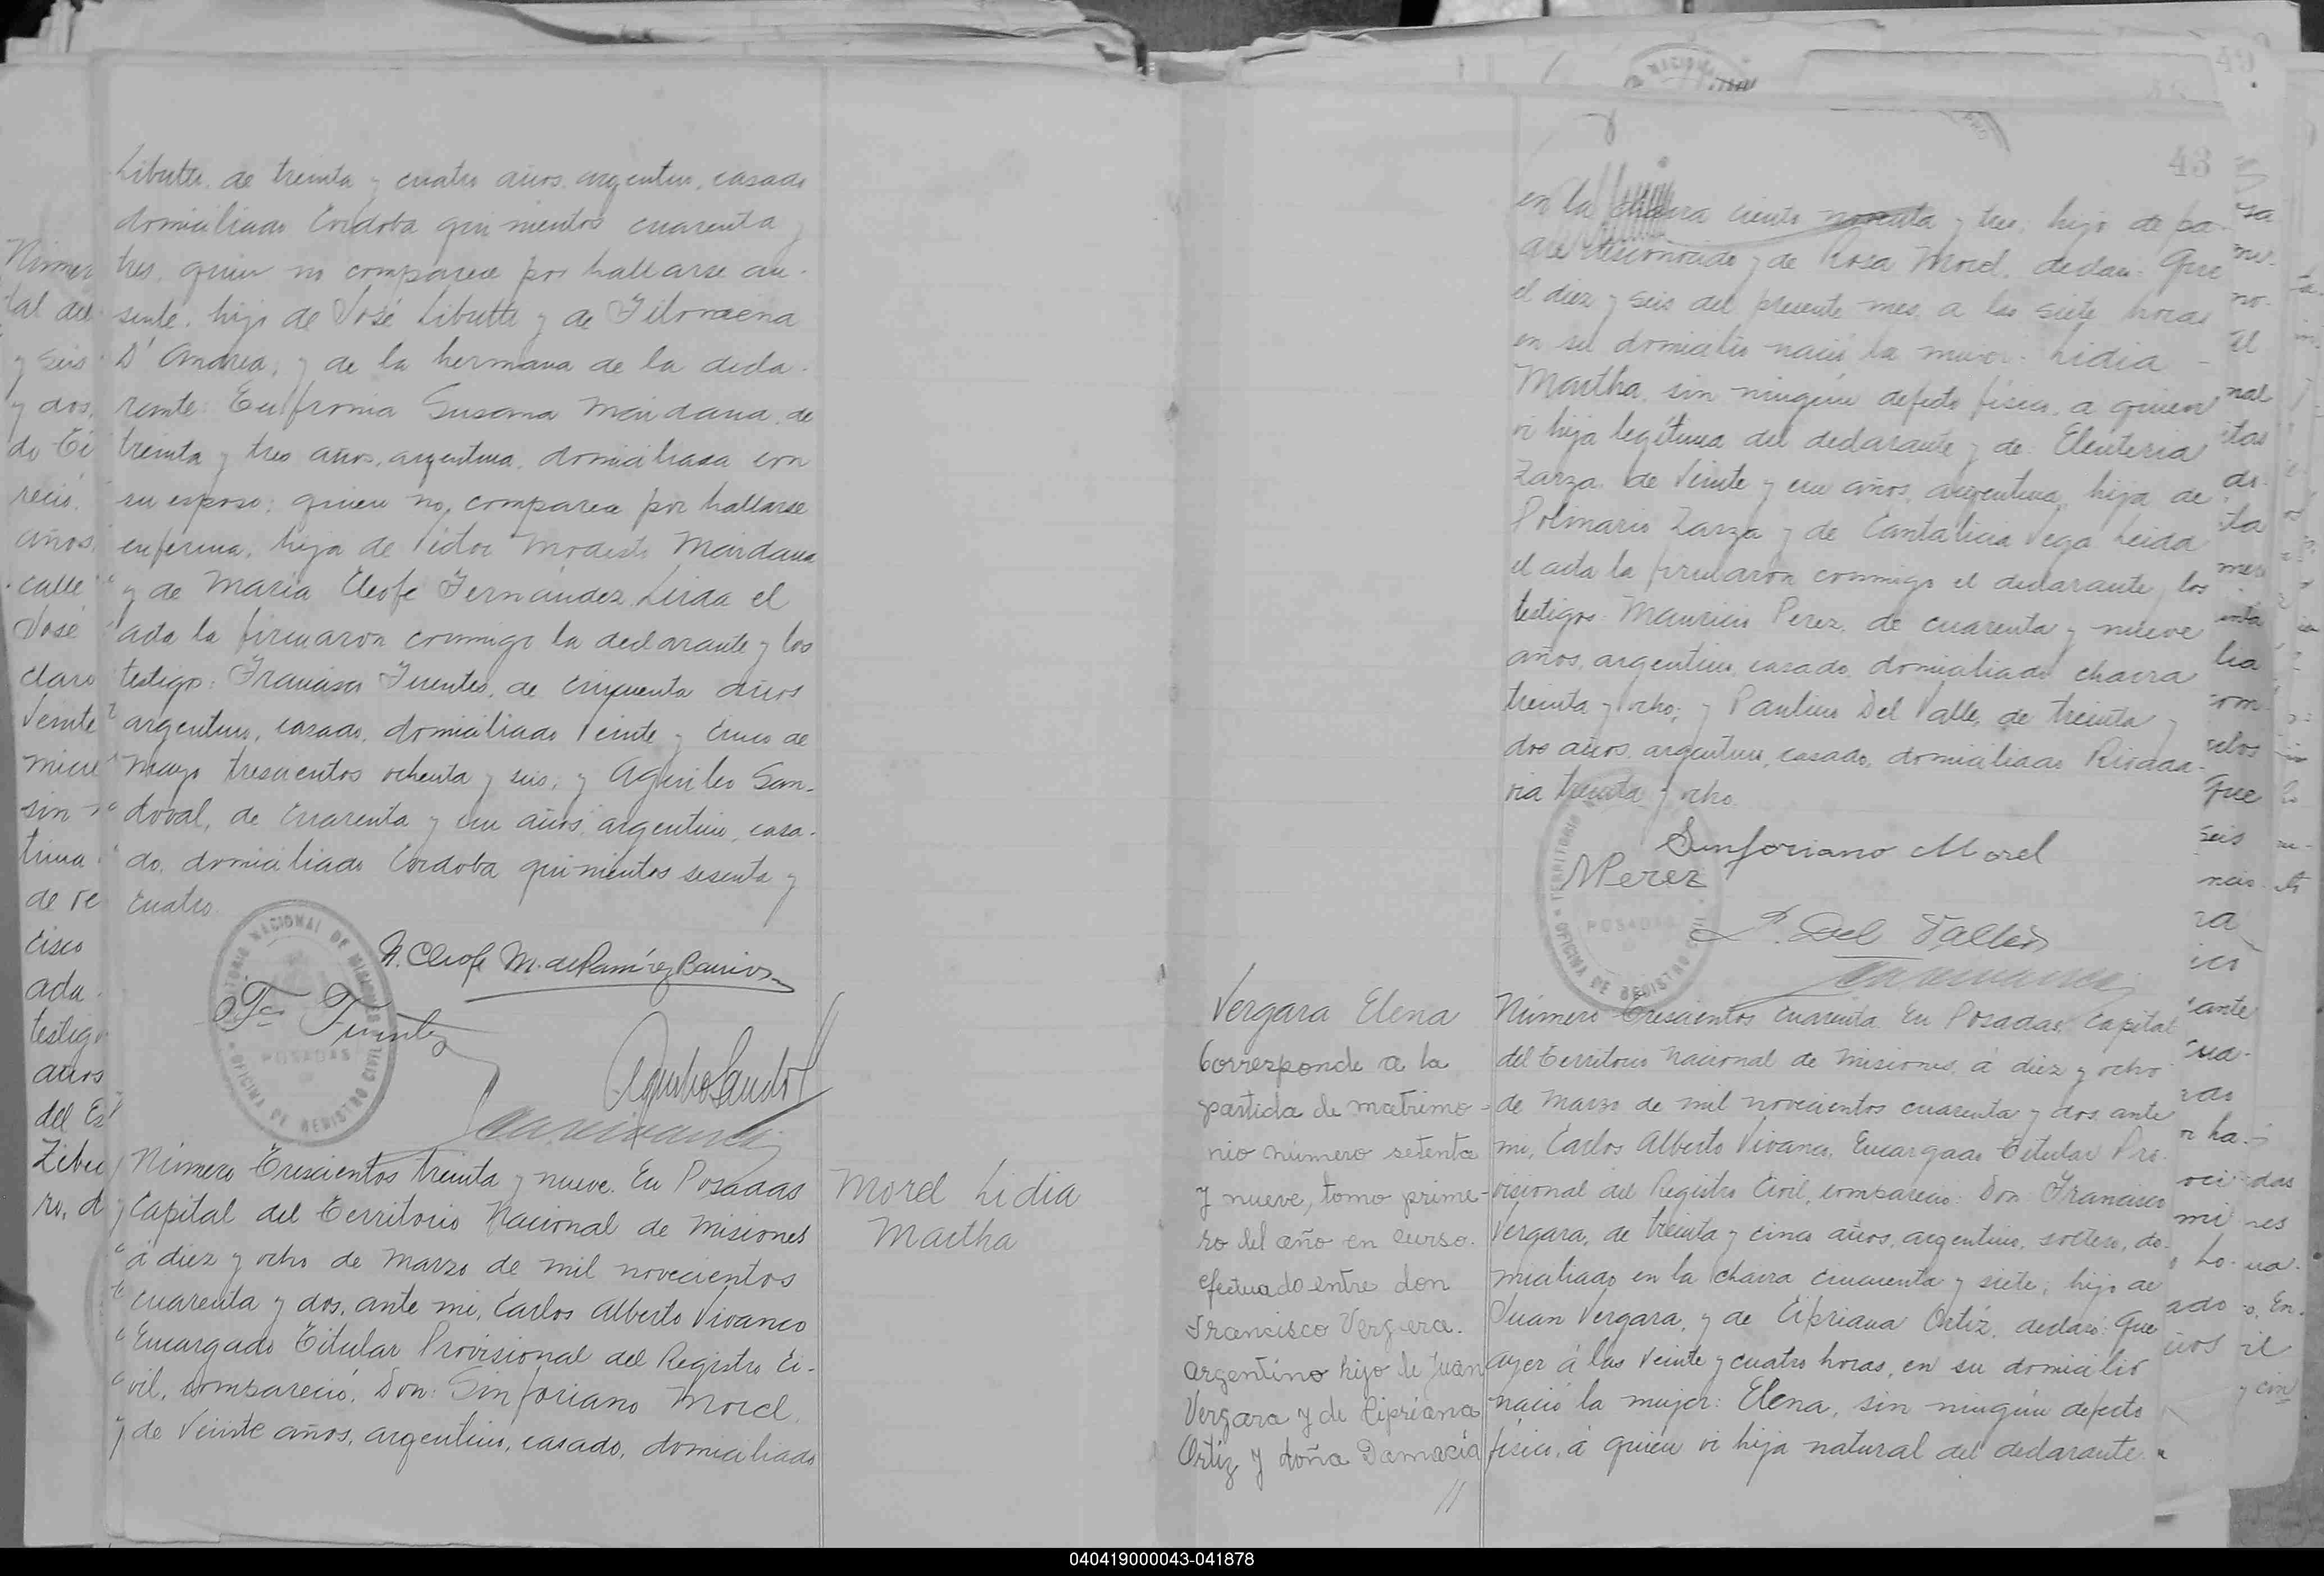 Libutti, de treinta y cuatro años, argentino, casado
domiciliado Córdoba quinientos cuarenta y
tres, quien no comparece por hallarse au-
sente, hijo de José Libutti y de Filomena
D'Andrea, y de la hermana de la decla-
rante: Eufronia Susana Maidana, de
treinta y tres años, argentina, domiciliada con
su esposo; quien no comparece por hallarse
enferma, hija de Victor Modesto Maidana
y de Maria Cleofe Fernández. Leida el
acta la firmaron conmigo la declarante y los
testigos: Francisco Fuentes, de cincuenta años
argentino, casado, domiciliado Veinte y Cinco de
Mayo trescientos ochenta y seis; y Aquileo San-
doval, de cuarenta y un años, argentino, casa-
do, domiciliado Cordoba quinientos sesenta y
cuatro.
M. Cleofe M. de Ramírez Barrios
Fco Fuentes
Aquileo Sandoval
TERRITORIO NACIONAL DE MISIONES
POSADAS
OFICINA DE REGISTRO CIVIL
Morel Lidia
Martha
Número Trescientos treinta y nueve. En Posadas
Capital del Territorio Nacional de Misiones
á diez y ocho de Marzo de mil novecientos
cuarenta y dos, ante mi, Carlos Alberto Vivanco
Encargado Titular Provisional del Registro Ci-
vil, compareció, Don: Sinforiano Morel,
de Veinte años, argentino, casado, domiciliado
43
en la chacra ciento noventa y tres, hijo de pa-
dre desconocido y de Rosa Morel, declaró: Que
el diez y seis del presente mes, a las siete horas
en su domicilio nació la mujer: Lidia
Martha, sin ningún defecto físico, a quien
vi hija legítima del declarante y de Eleuteria
Zarza, de Veinte y un años, argentina, hija de
Polinario Zarza y de Cantalicia Vega. Leida
el acta la firmaron conmigo el declarante y los
testigos: Mauricio Perez, de cuarenta y nueve
años, argentino, casado, domiciliado chacra
treinta y ocho; y Paulino Del Valle, de treinta y
dos años, argentino, casado, domiciliado Rivada-
via treinta y ocho.
Sinforiano Morel
MPerez
P. Del Valle
TERRITORIO
POSADAS
OFICINA DE REGISTRO CIVIL
Vergara Elena
Corresponde a la
partida de matrimo-
nio número setenta
y nueve, tomo prime-
ro del año en curso.
efectuado entre don
Francisco Vergara.
argentino hijo de Juan
Vergara y de Cipriana
Ortíz y doña Damacia
//
Número Trescientos cuarenta. En Posadas, Capital
del Territorio Nacional de Misiones, á diez y ocho
de Marzo de mil novecientos cuarenta y dos, ante
mi, Carlos Alberto Vivanco, Encargado Titular Pro-
visional del Registro Civil, compareció: Don: Francisco
Vergara, de treinta y cinco años, argentino, soltero, do-
miciliado en la chacra cincuenta y siete; hijo de
Juan Vergara, y de Cipriana Ortíz, declaró: Que
ayer á las Veinte y cuatro horas, en su domicilio
nació la mujer: Elena, sin ningún defecto
físico, á quien vi hija natural del declarante
040419000043-041878